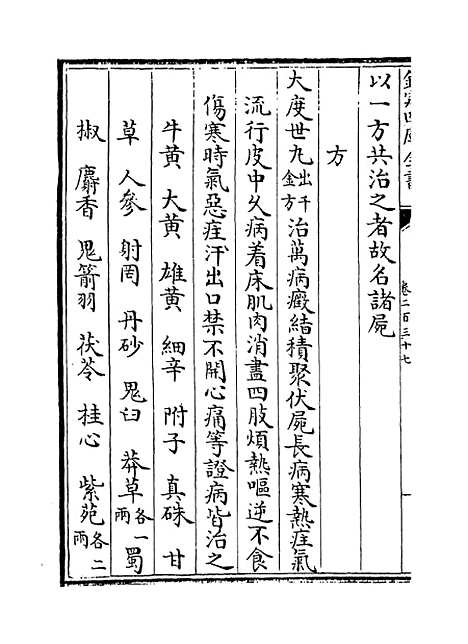 欽定四庫全書
卷二百三十七
以一方共治之者故名諸屍
方
大度世丸出千金方治萬病癥結積聚伏屍長病寒熱疰氣
流行皮中久病着床肌肉消盡四肢煩熱嘔逆不食
傷寒時氣惡疰汗出口禁不開心痛等證病皆治之
牛黃 大黃 雄黃 細辛 附子 真硃 甘
草 人參 射罔 丹砂 鬼臼 莽草各一兩 蜀
椒 麝香 鬼箭羽 茯苓 桂心 紫苑各二兩